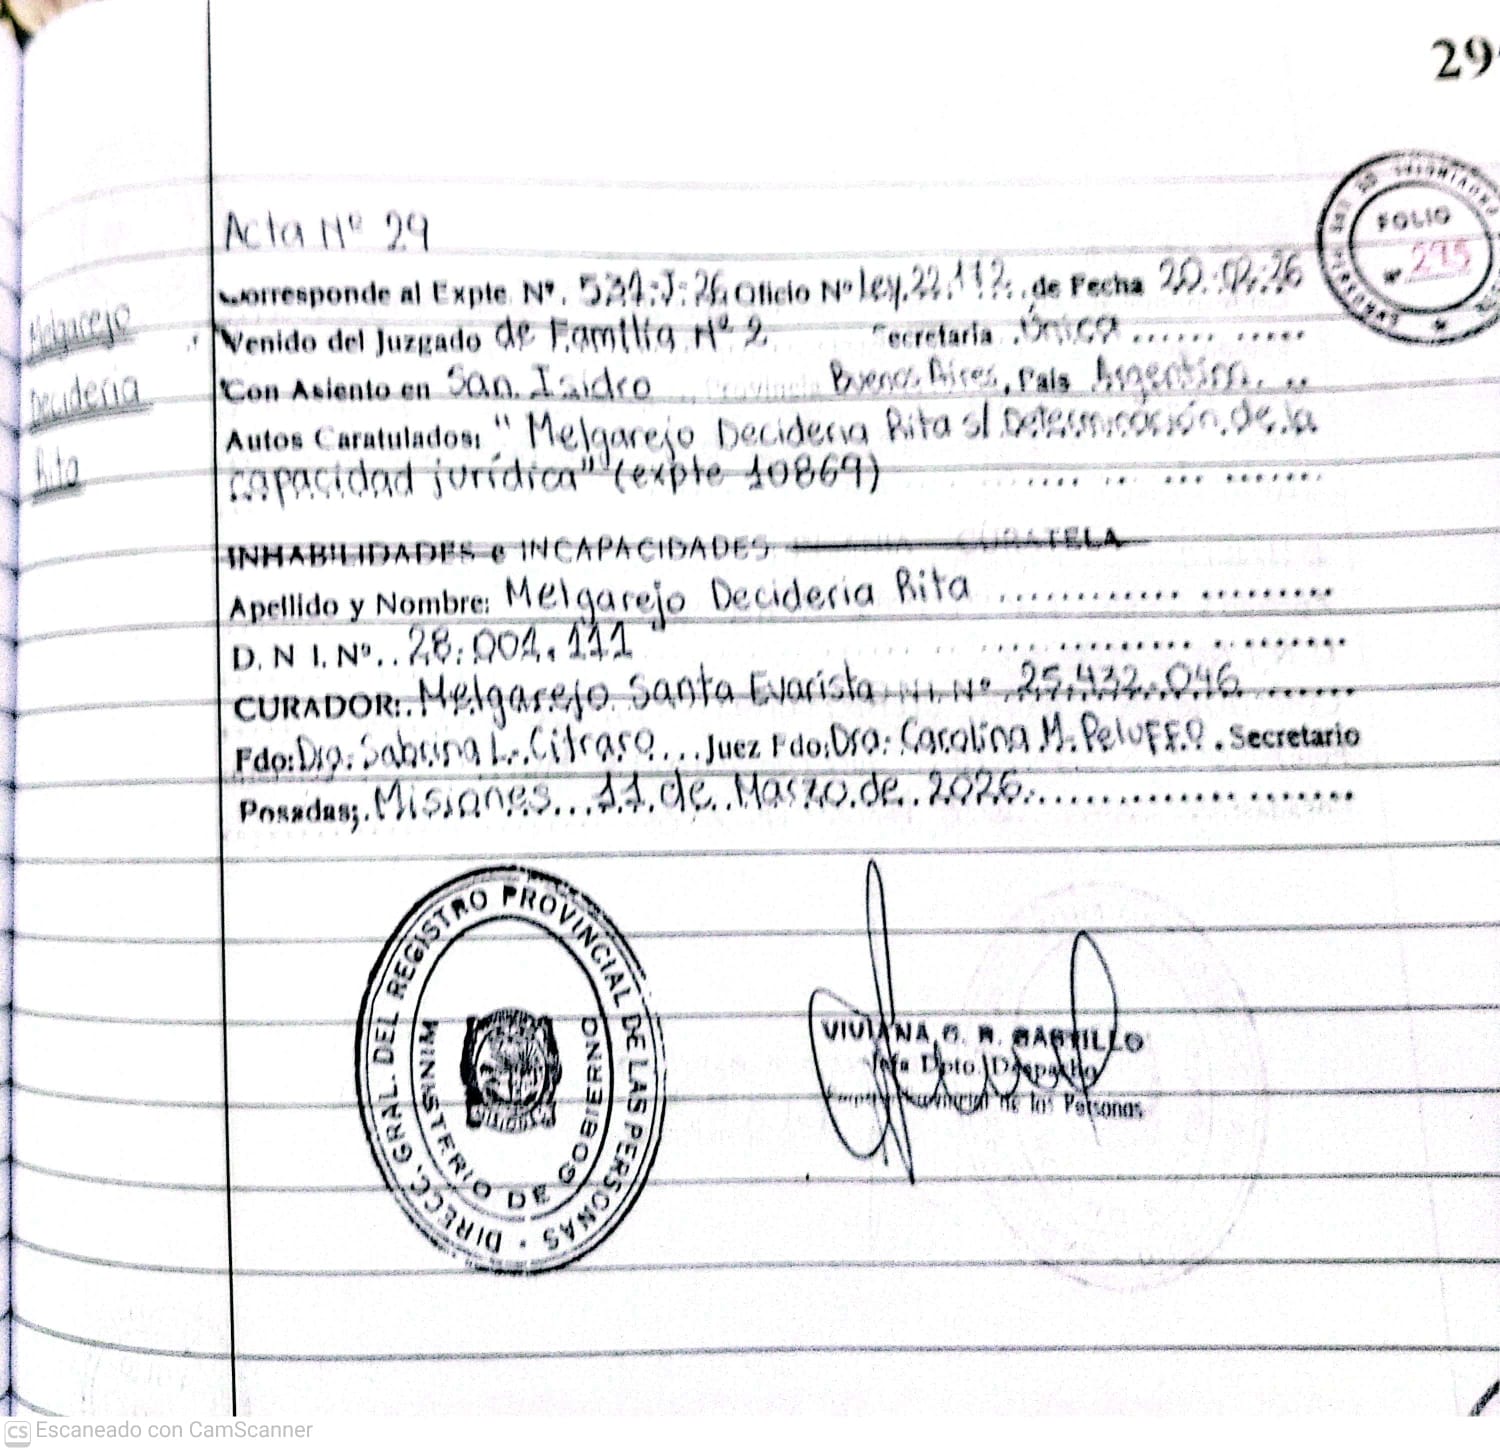 29
FOLIO
Nº 295
Acta Nº 29
Corresponde al Expte. Nº. 531.J.26. Oficio Nº ley.22.112. de Fecha 20.02.26
Venido del Juzgado de Familia Nº 2 Secretaria .Única
Melgarejo
Con Asiento en San. Isidro Provincia Buenos Aires, Pais Argentina.
Decideria
Autos Caratulados: "Melgarejo Decideria Rita s/ Determinación.de.la
Rita
capacidad jurídica" (expte 10869)
INHABILIDADES e INCAPACIDADES CURATELA
Apellido y Nombre: Melgarejo Decideria Rita
D. N I. Nº.. 28.001.111
CURADOR:. Melgarejo Santa Evarista N I. Nº 25.432.046
Fdo: Dra. Sabrina L. Citraro... Juez Fdo: Dra: Carolina M. Peluffo. Secretario
Posadas; Misiones...11.de.Marzo.de.2026.
DIRECC. GRAL. DEL REGISTRO PROVINCIAL DE LAS PERSONAS
MINISTERIO DE GOBIERNO
VIVIANA G. R. CASTILLO
Jefa Dpto. Despacho
Provincial de las Personas
CS Escaneado con CamScanner